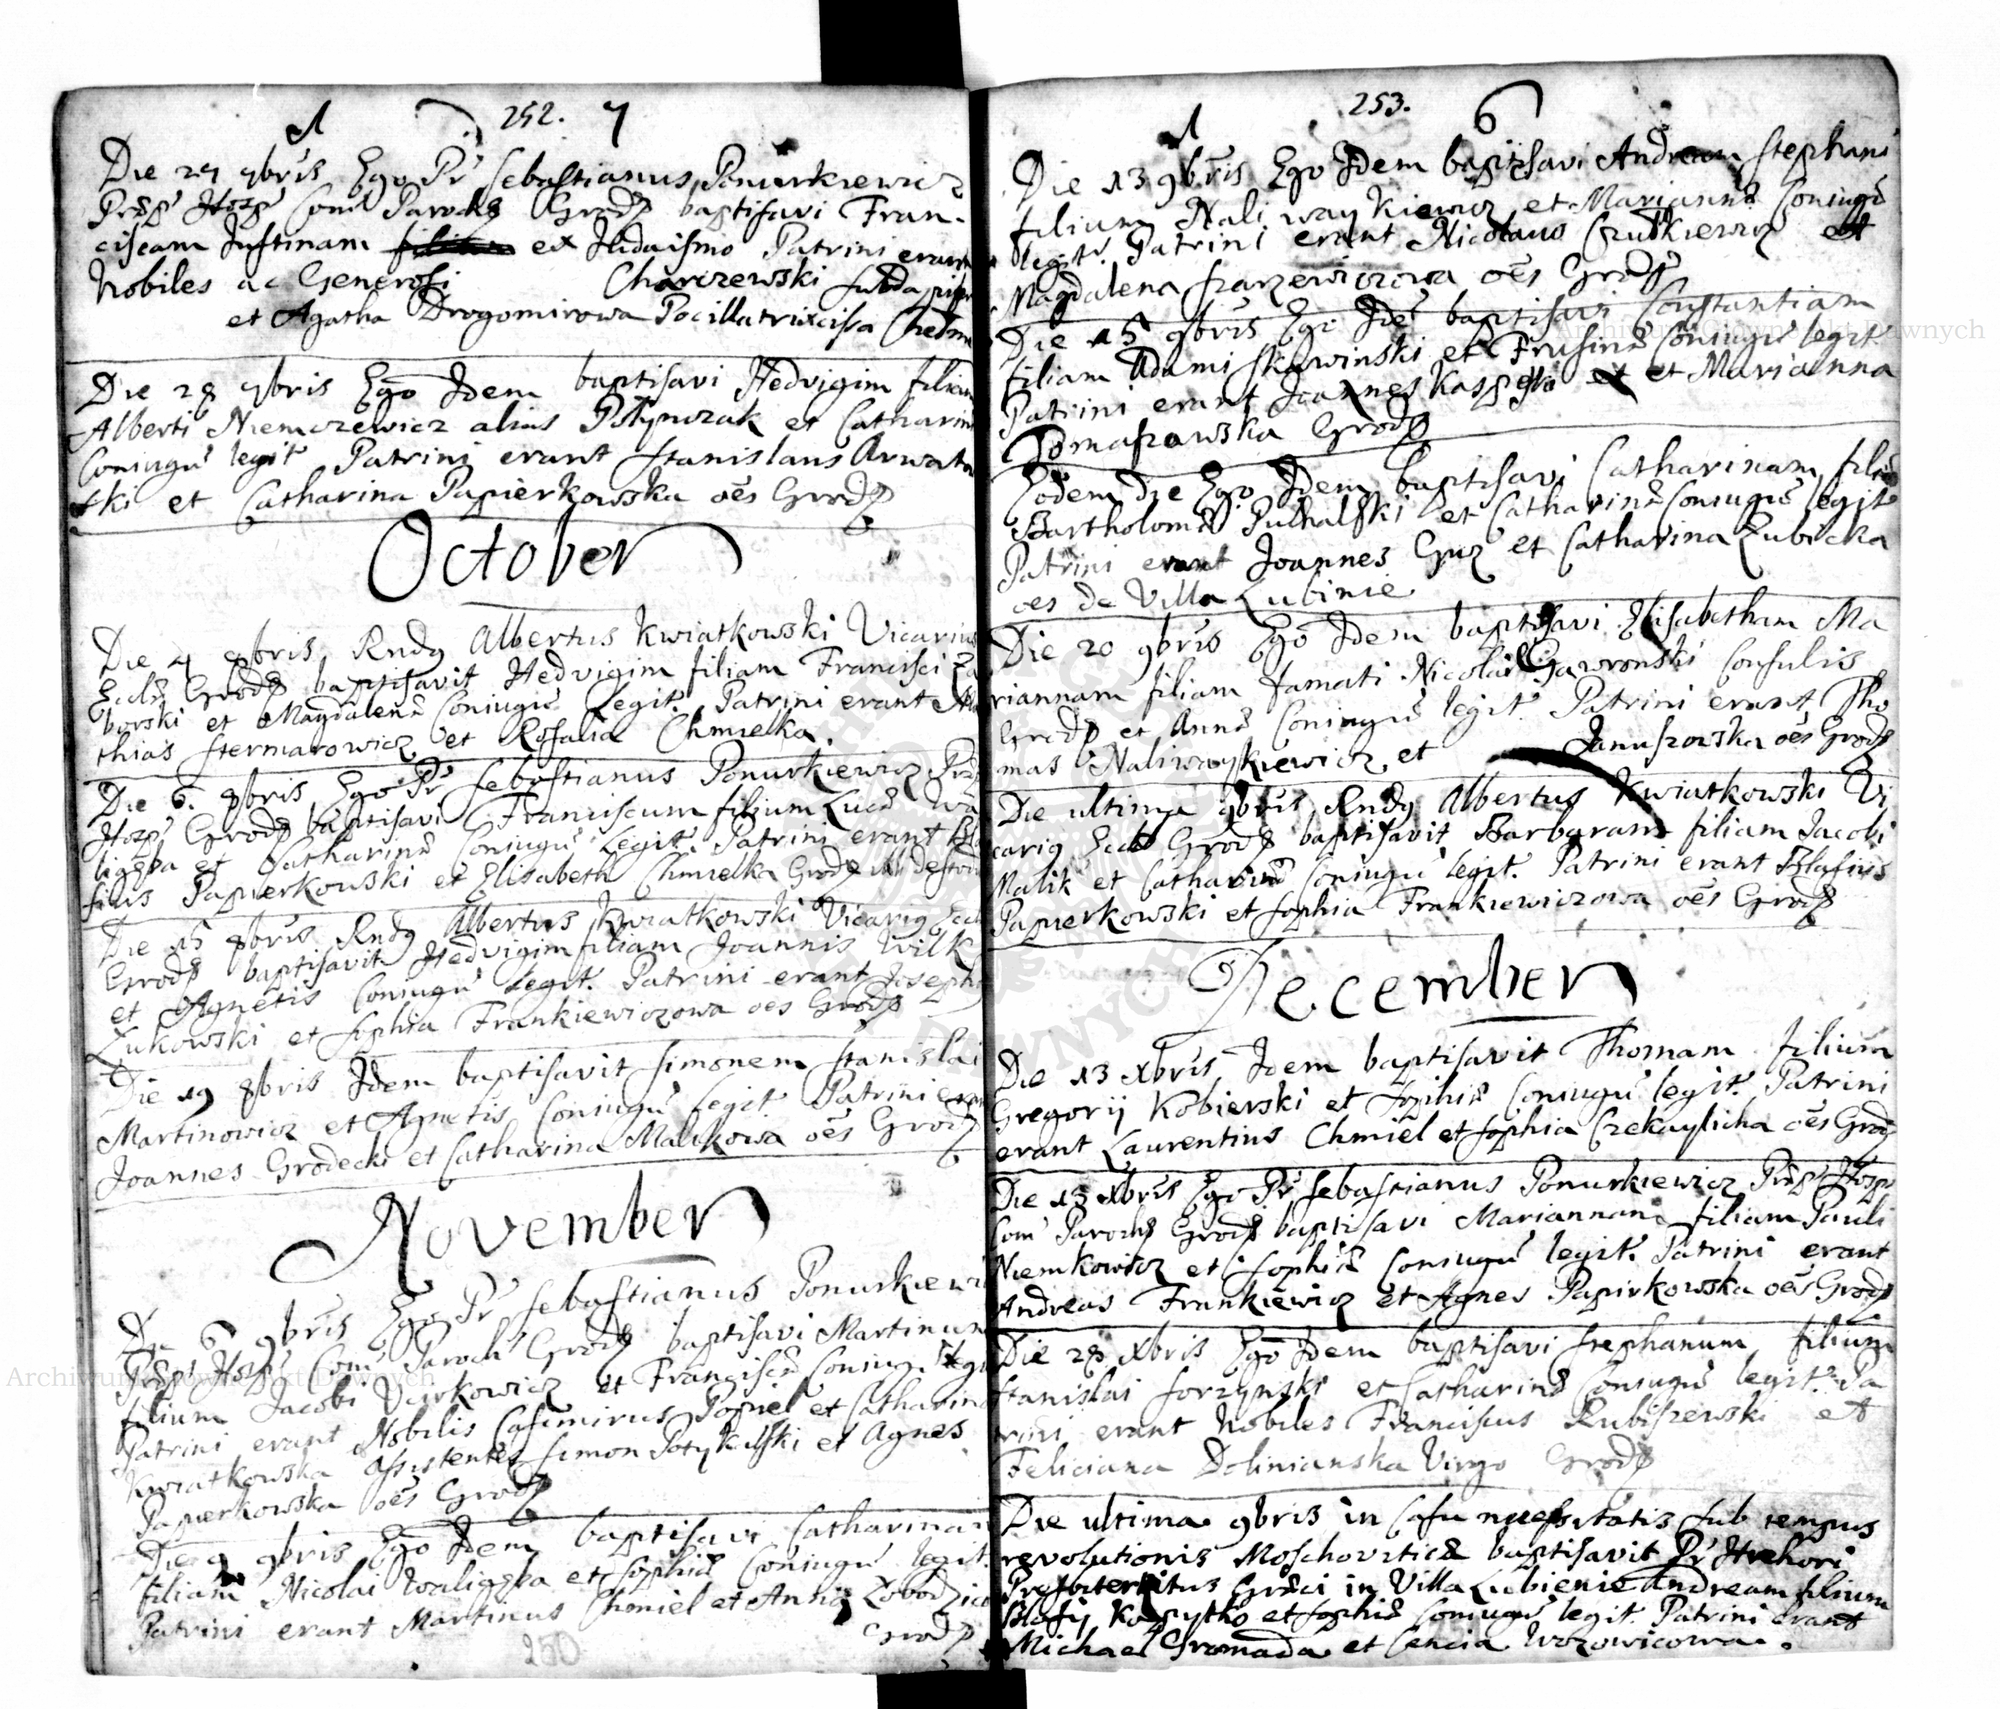 252. 7
Die 27 7bris Ego Pr Sebastianus Ponurkiewicz
Præp Hosp Com Paroch Grod baptisavi Fran-
ciscam Justinam ex Judaismo Patrini erant
Nobiles ac Generosi Charczewski
et Agatha Drogomirowa Pocillatrix
Die 28 7bris Ego Idem baptisavi Hedvigim filiam
Alberti Niemczewicz alias et Catharinæ
Coniugū legit Patrini erant Stanislaus
ski et Catharina Papierkowska oēs Grod
October
Die 4 8bris Rndq Albertus Kwiatkowski Vicarius
Eccl Grod baptisavit Hedvigim filiam Francisci Za
borski et Magdalenæ Coniugū Legit. Patrini erant Ma
thias Stermarowicz et Rosalia Chmielka.
Die 6. 8bris Ego Pr Sebastianus Ponurkiewicz Præp
Hosp Grod baptisavi Franciscum filium Lucæ Wa
ligęka et Catharinæ Coniugū Legit. Patrini erant
Papierkowski et Elisabeth Chmielka Grod
Die 15 8bris Rndq Albertus Kwiatkowski Vicariq Eccl
Grod baptisavit Hedvigim filiam Joannis Wilk
et Agnetis Coniugū Legit. Patrini erant Josephq
Zukowski et Sophia Frankiewiczowa oes Grod
Die 19 8bris Idem baptisavit Simonem Stanislai
Martinowicz et Agnetis Coniugū Legit Patrini erant
Joannes Grodecki et Catharina Malikowa oēs Grod
November
Die 6 9bris Ego Pr Sebastianus Ponurkiewi
Præp Hosp Com Paroch Grod baptisavi Martinum
filium Jacobi Vankowicz et Franciscæ Coniugū legit
Patrini erant Nobilis Casimirus Popiel et Catharina
Kwiatkowska Assistentes Simon Potykalski et Agnes
Papierkowska oēs Grod
Die 9 9bris Ego Idem baptisavi Catharinam
filiam Nicolai Waligęka et Sophiæ Coniugū legit.
Patrini erant Martinus Chmiel et Anna
Grod
250
253. 6
Die 13 9bris Ego Idem baptisavi Andream Stephani
filium Naliwaykiewicz et Mariannæ Coniugū
legit. Patrini erant Nicolaus Czutkiewicz et
Magdalena Szarzewiczowa oēs Grod
Die 15 9bris Ego Idē baptisavi Constantiam
filiam Adami Skowinski et Frusinæ Coniugū legit
Patrini erant Joannes et Marianna
Tomaszowska Grod
Eodem die Ego Idem baptisavi Catharinam filiā
Bartholomæi Puchalski et Catharinæ Coniugū legit
Patrini erant Joannes Guz et Catharina Zubicka
oes de Villa Lubinie
Die 20 9bris Ego Idem baptisavi Elisabetham Ma
riannam filiam Famati Nicolai Gawronski Consulis
Grod et Annæ Coniugū legit. Patrini erant Tho
mas Naliwaykiewicz et Januszowska oēs Grod
Die ultima 9bris Rndq Albertus Kwiatkowski Vi
cariq Eccl Grod baptisavit Barbaram filiam Jacobi
Malik et Catharinæ Coniugū legit. Patrini erant Blasius
Papierkowski et Sophia Frankiewiczowa oēs Grod
December
Die 13 xbris Idem baptisavit Thomam filium
Gregorij Kobierski et Sophiæ Coniugū legit. Patrini
erant Laurentius Chmiel et Sophia Czekaylicha oēs Grod
Die 13 xbris Ego Pr Sebastianus Ponurkiewicz Præp Hosp
Com Paroch Grod baptisavi Mariannam filiam Pauli
Niemkowicz et Sophiæ Coniugū legit. Patrini erant
Andreas Frankiewicz et Agnes Papirkowska oēs Grod
Die 28 xbris Ego Idem baptisavi Stephanum filium
Stanislai Sorzynski et Catharinæ Coniugū legit. Pa
trini erant Nobiles Franciscus Rubiszewski et
Feliciana Dolinianska Virgo Grod
Die ultima 9bris in Casu necessitatis sub tempus
revolutionis Moschoviticæ baptisavit Pr Hrehori
Presbiter ritus Græci in Villa Lubienie Andream filium
Blasij Kopytko et Sophiæ Coniugū legit. Patrini erant
Michael Gromada et Cencia Wozowicowa.
Archiwum Główne Akt Dawnych
Archiwum Główne Akt Dawnych